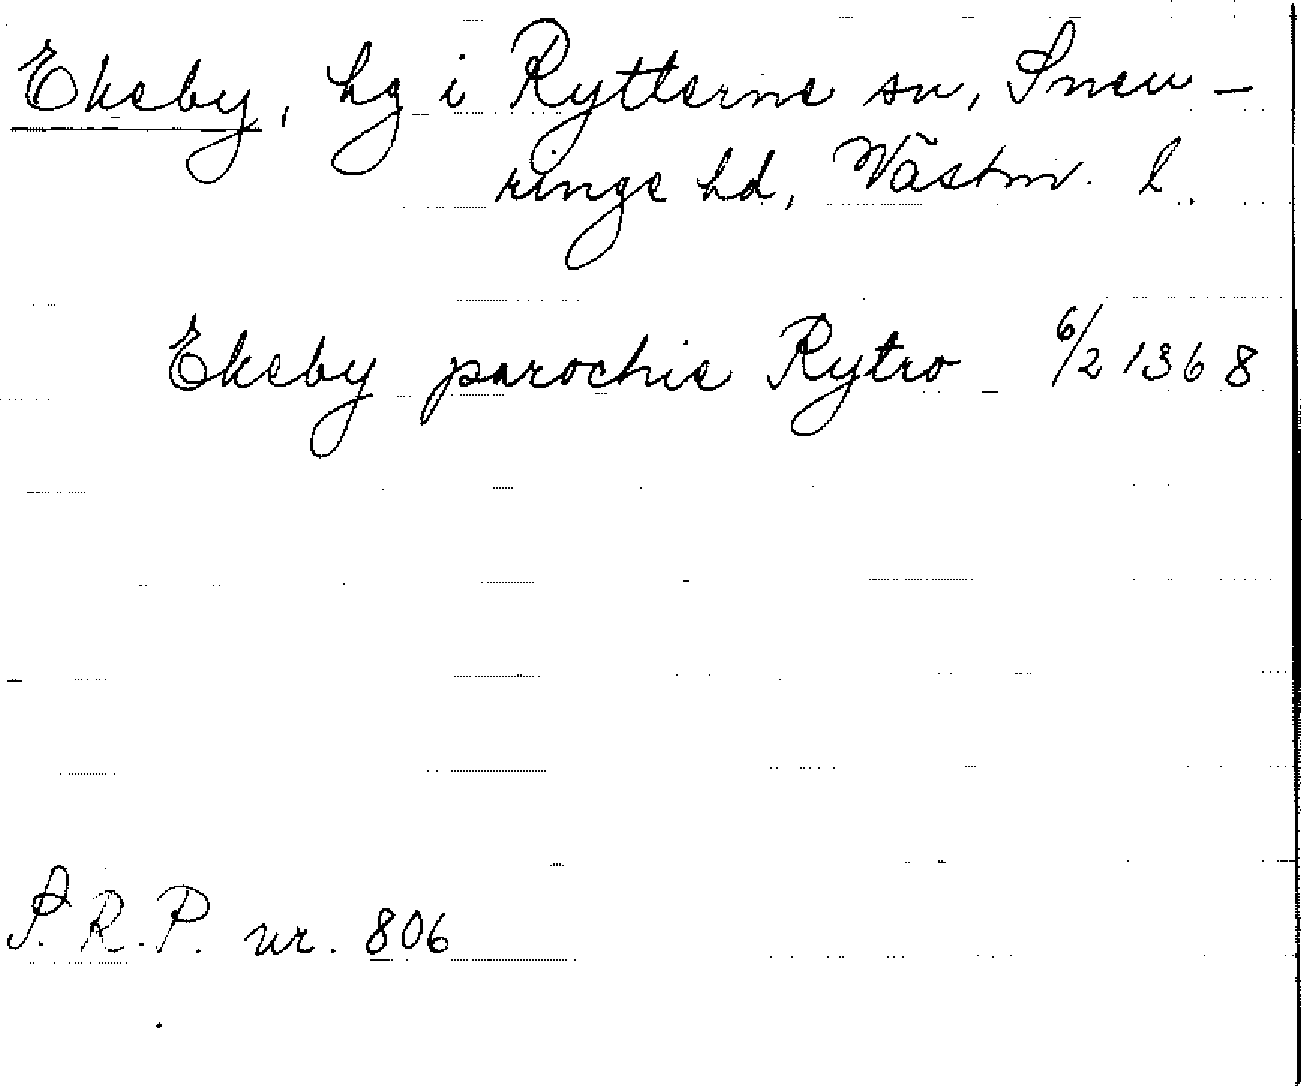 Ekeby, hg i Rytterne sn, Snew-
ringe hd, Västm. l.
Ekeby parochie Rytro 6/2 1368
S.R.P. nr. 806